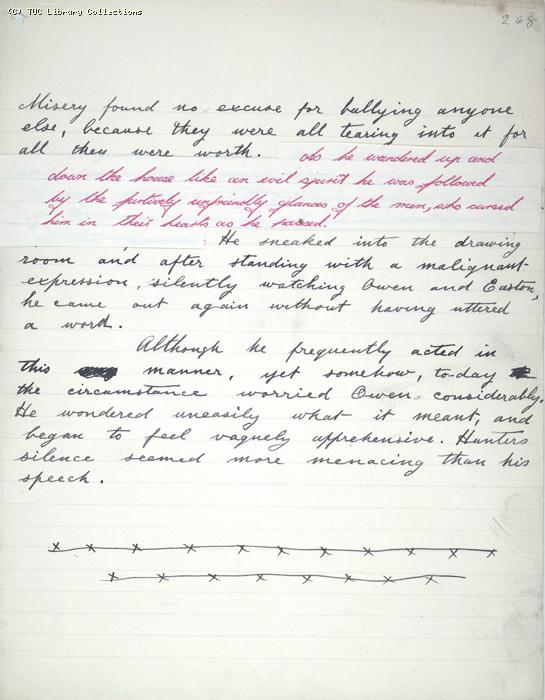 (C) TUC Library Collections
268
Misery found no excuse for bullying anyone
else, because they were all tearing into it for
all they were worth. As he wandered up and
down the house like an evil spirit he was followed
by the furtively unfriendly glances of the men, who cursed
him in their hearts as he passed.
He sneaked into the drawing
room and after standing with a malignant
expression, silently watching Owen and Easton,
he came out again without having uttered
a word.
Although he frequently acted in
this manner, yet somehow, to-day
the circumstance worried Owen considerably.
He wondered uneasily what it meant, and
began to feel vaguely apprehensive. Hunters
silence seemed more menacing than his
speech.